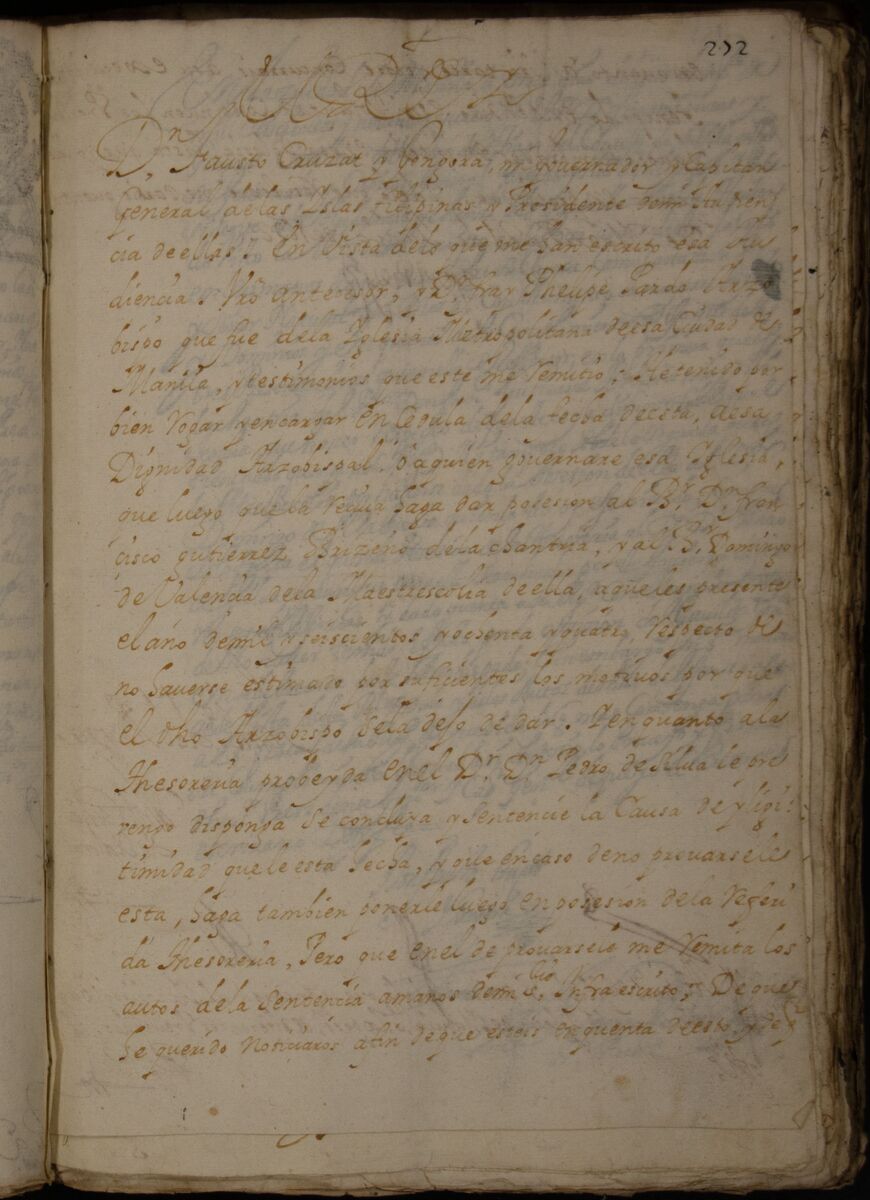 232
El Rey
Dn. Fausto Cruzat y Gongora, mi Governador y Capitan
general de las Islas Filipinas y Presidente de mi Audien
cia de ellas; En Vista de lo que me han escrito esa Au
diencia, Vro antecesor, y Dn. fray Phelipe Pardo Arzo
bispo que fue de la Iglesia Metropolitana de esa Ciudad de
Manila, y testimonios que este me remitio; He tenido por
bien rogar y encargar en Cedula de la fecha de esta, a esa
Dignidad Arzobispal, o a quien governare esa Iglesia,
que luego que la reciva haga dar posesion al Br. Dn. fran
cisco gutierrez Brizeño de la chantria, y al Br. Domingo
de Valencia de la Maestrescolia de ella, a que les presente
el año de mil y seiscientos y ochenta y quatro, respecto de
no haverse estimado por suficientes los motivos por que
el dho Arzobispo se la dejo de dar. Y en quanto a la
thesoreria proveyda en el Dr. Dn. Pedro de Silva le pre
vengo disponga se concluya y sentencie la Causa de yligi
timidad que le esta fecha, y que en caso de no provarsele
esta, haga tambien ponerle luego en posesion de la referi
da thesoreria, Pero que en el de provarsele me remita los
autos de la sentencia a manos de mi Srio. Infraescrito; De que
he querido noticiaros a fin de que esteis en quenta de esto, y de